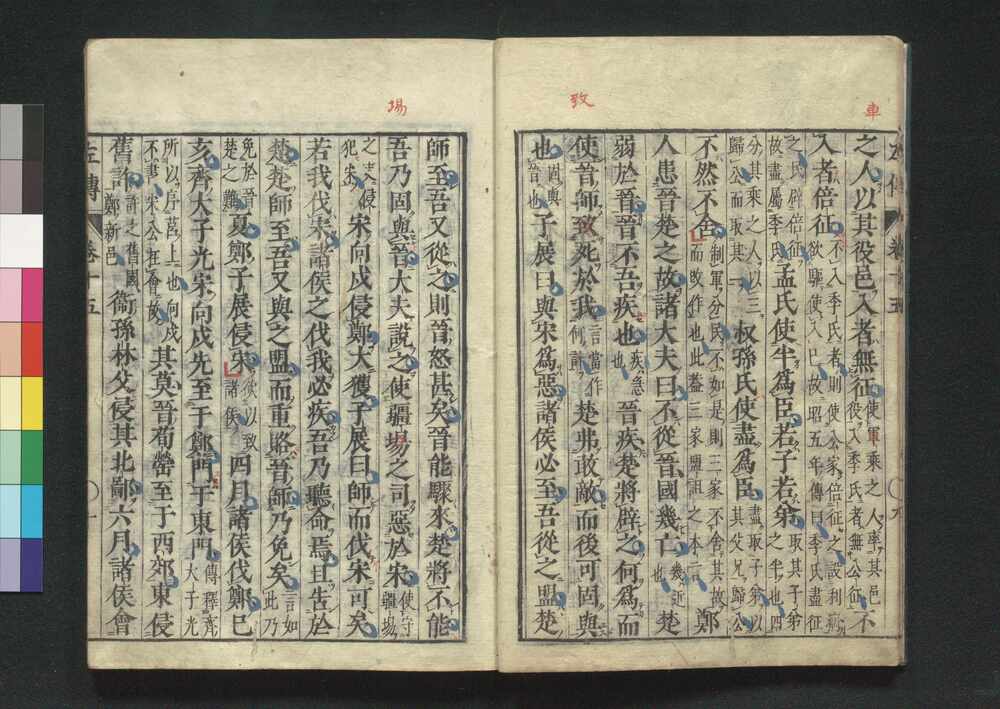 車
攷
場
左傳 卷十五
之人以其役邑入者無征使軍乘之人率其邑役入季氏者無公征不
入者倍征不入季氏者則使公家倍征之設利病欲驅使入己故昭五年傳曰季氏盡征
之民辟倍征故盡屬季氏孟氏使半爲臣若子若弟取其子弟之半也四
分其乘之人以三歸公而取其一叔孫氏使盡爲臣盡取子弟以其父兄歸公
不然不舍制軍分民不如是則三家不舍其故而改作也此蓋三家盟詛之本言鄭
人患晉楚之故諸大夫曰不從晉國幾亡幾近也楚
弱於晉晉不吾疾也疾急也晉疾楚將辟之何爲而
使晉師致死於我言當作何計楚弗敢敵而後可固與
也固與晉也子展曰與宋爲惡諸侯必至吾從之盟楚
師至吾又從之則晉怒甚矣晉能驟來楚將不能
吾乃固與晉大夫說之使疆埸之司惡於宋使守疆埸
之吏侵犯宋宋向戌侵鄭大獲子展曰師而伐宋可矣
若我伐宋諸侯之伐我必疾吾乃聽命焉且告於
楚楚師至吾又與之盟而重賂晉師乃免矣言如此乃
免於晉楚之難夏鄭子展侵宋欲以致諸侯四月諸侯伐鄭己
亥齊大子光宋向戌先至于鄭門于東門傳釋齊大子光
所以序莒上也向戌不書宋公在會故其莫晉荀罃至于西郊東侵
舊許許之舊國鄭新邑衞孫林父侵其北鄙六月諸侯會
左傳 卷十五